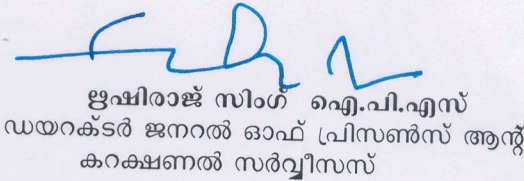 ഋഷിരാജ് സിംഗ് ഐ.പി.എസ്
ഡയറക്ടർ ജനറൽ ഓഫ് പ്രിസൺസ് ആന്റ്
കറക്ഷണൽ സർവ്വീസസ്